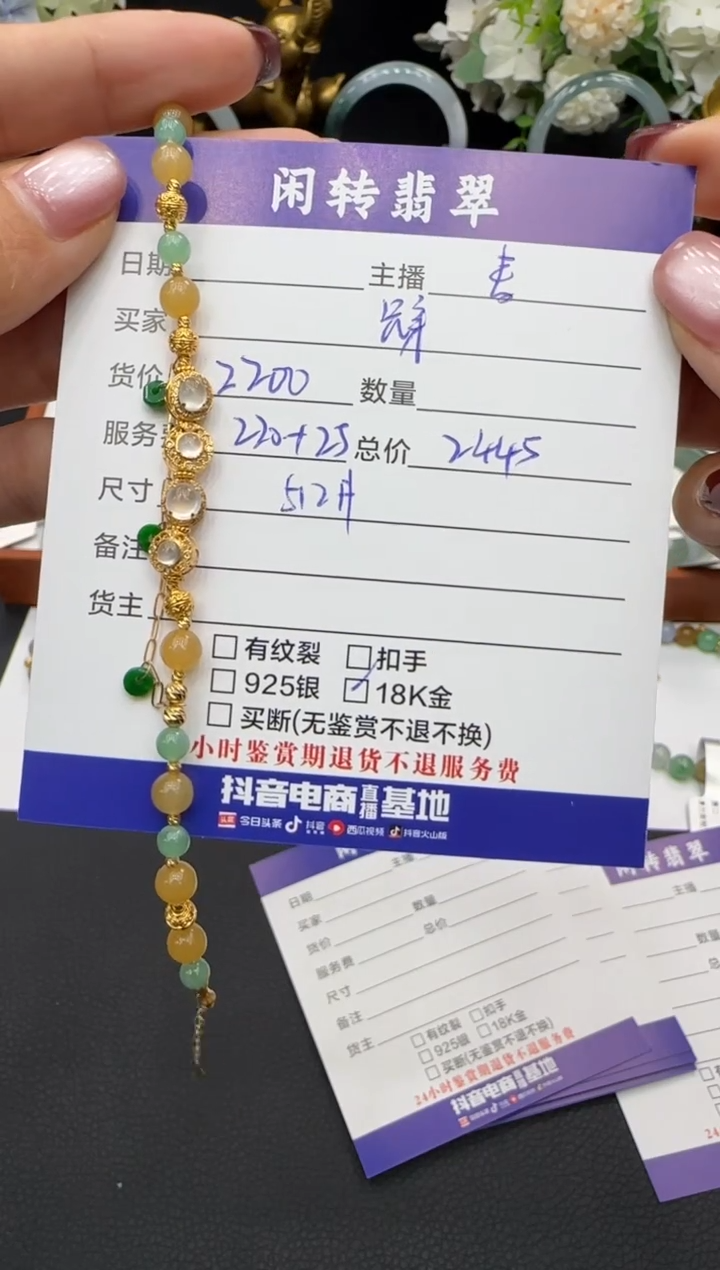 闲转翡翠
日期 主播
买家
货价 2200 数量
服务费 220+25 总价 2445
尺寸
备注
货主
有纹裂 扣手
925银 18K金
买断(无鉴赏不退不换)
小时鉴赏期退货不退服务费
抖音电商直播基地
头条 今日头条 抖音 西瓜视频 抖音火山版
闲转翡翠
日期 主播
买家
货价 数量
服务费 总价
尺寸
备注
货主
有纹裂 扣手
925银 18K金
买断(无鉴赏不退不换)
24小时鉴赏期退货不退服务费
抖音电商直播基地
主播
数量
24